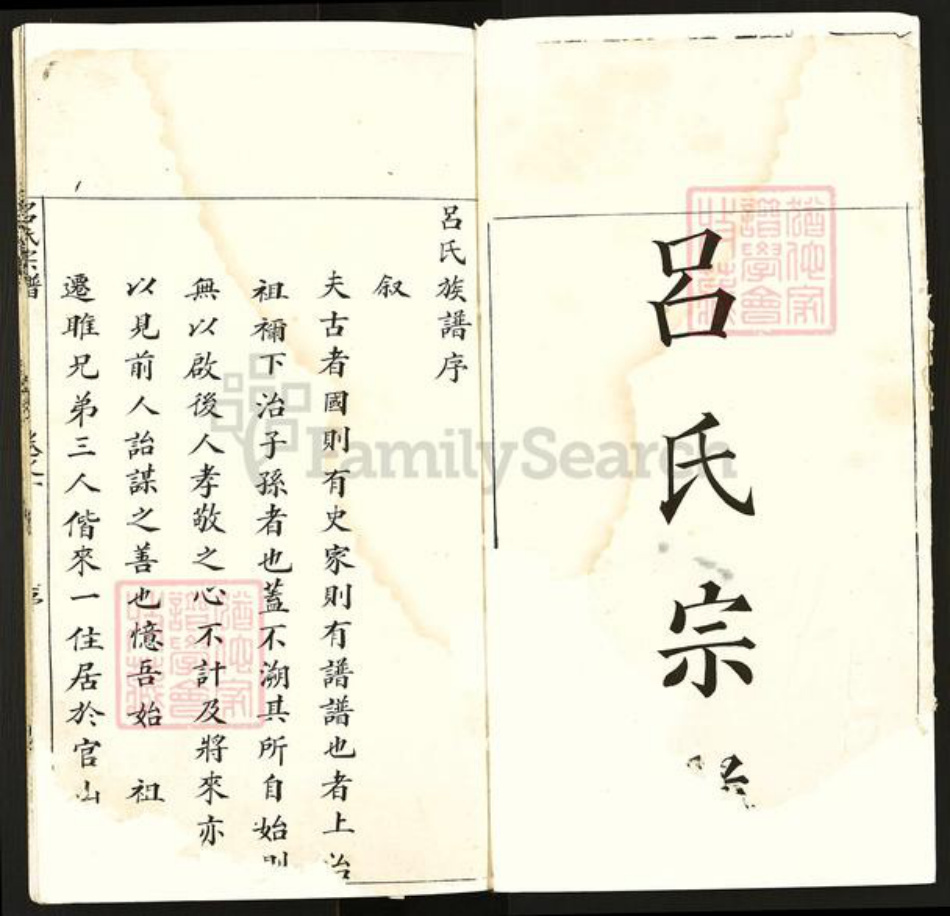 呂氏宗
呂氏族譜序
叙
夫古者國則有史家則有譜譜也者上治
祖禰下治子孫者也蓋不溯其所自始則
無以啟後人孝敬之心不計及將來亦
以見前人詒謀之善也憶吾始 祖
遷睢兄弟三人偕來一住居於官山
呂氏宗譜
序
FamilySearch